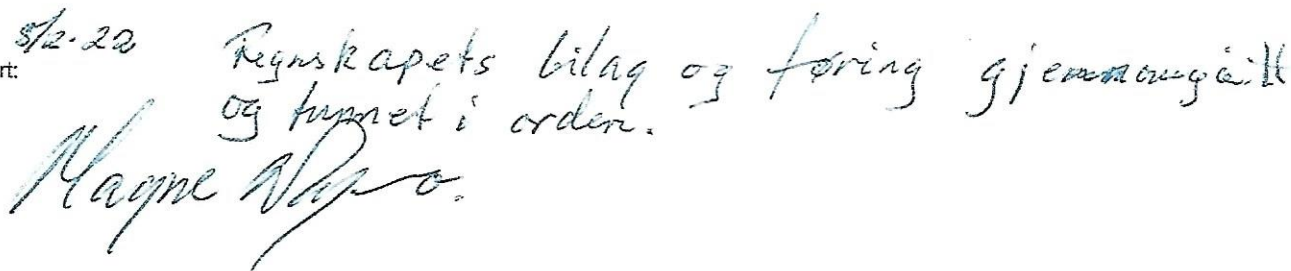 5/2-22 Regnskapets bilag og føring gjennomgått
rt:
og funnet i orden.
Magne